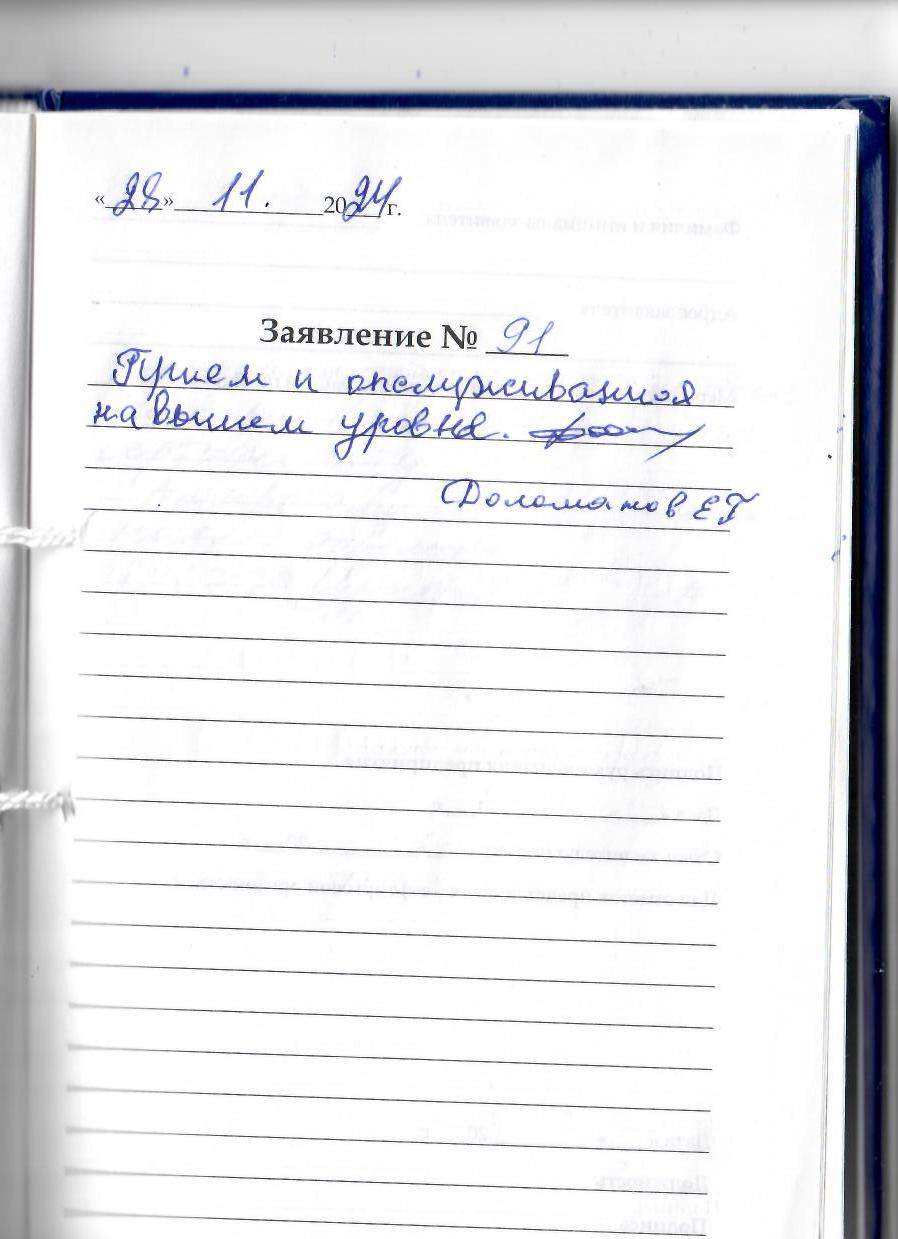 «28» 11. 2024 г.
Заявление № 91
Прием и опслуживания
на вышем уровне.
Доломанов ЕГ